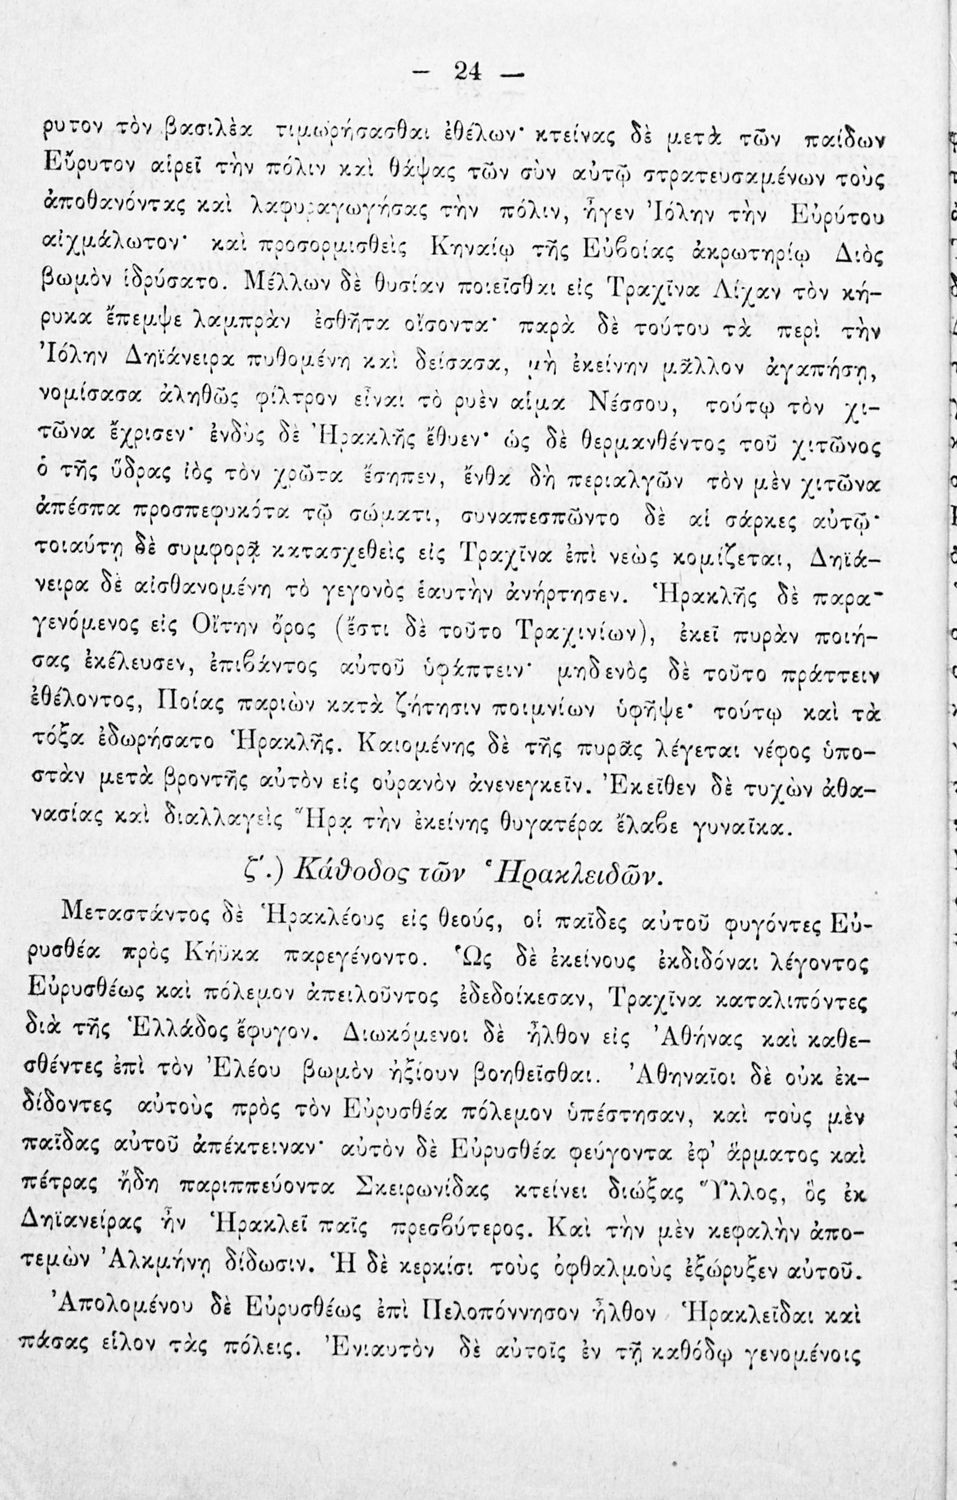 — 24 —
ρυτον τὸν βασιλέα τιμωρήσασθαι ἐθέλων· κτείνας δὲ μετὰ τῶν παίδων
Εὔρυτον αἱρεῖ τὴν πόλιν καὶ θάψας τῶν σὺν αὐτῷ στρατευσαμένων τοὺς
ἀποθανόντας καὶ λαφυραγωγήσας τὴν πόλιν, ἦγεν Ἰόλην τὴν Εὐρύτου
αἰχμάλωτον· καὶ προσορμισθεὶς Κηναίῳ τῆς Εὐβοίας ἀκρωτηρίῳ Διὸς
βωμὸν ἱδρύσατο. Μέλλων δὲ θυσίαν ποιεῖσθαι εἰς Τραχῖνα Λίχαν τὸν κή-
ρυκα ἔπεμψε λαμπρὰν ἐσθῆτα οἴσοντα· παρὰ δὲ τούτου τὰ περὶ τὴν
Ἰόλην Δηϊάνειρα πυθομένη καὶ δείσασα, μὴ ἐκείνην μᾶλλον ἀγαπήσῃ,
νομίσασα ἀληθῶς φίλτρον εἶναι τὸ ρυὲν αἷμα Νέσσου, τούτῳ τὸν χι-
τῶνα ἔχρισεν· ἐνδὺς δὲ Ἡρακλῆς ἔθυεν· ὡς δὲ θερμανθέντος τοῦ χιτῶνος
ὁ τῆς ὕδρας ἰὸς τὸν χρῶτα ἔσηπεν, ἔνθα δὴ περιαλγῶν τὸν μὲν χιτῶνα
ἀπέσπα προσπεφυκότα τῷ σώματι, συναπεσπῶντο δὲ αἱ σάρκες αὐτῷ·
τοιαύτῃ δὲ συμφορᾷ κατασχεθεὶς εἰς Τραχῖνα ἐπὶ νεὼς κομίζεται, Δηϊά-
νειρα δὲ αἰσθανομένη τὸ γεγονὸς ἑαυτὴν ἀνήρτησεν. Ἡρακλῆς δὲ παρα-
γενόμενος εἰς Οἴτην ὄρος (ἔστι δὲ τοῦτο Τραχινίων), ἐκεῖ πυρὰν ποιή-
σας ἐκέλευσεν, ἐπιβάντος αὐτοῦ ὑφάπτειν· μηδενὸς δὲ τοῦτο πράττειν
ἐθέλοντος, Ποίας παριὼν κατὰ ζήτησιν ποιμνίων ὑφῆψε· τούτῳ καὶ τὰ
τόξα ἐδωρήσατο Ἡρακλῆς. Καιομένης δὲ τῆς πυρᾶς λέγεται νέφος ὑπο-
στὰν μετὰ βροντῆς αὐτὸν εἰς οὐρανὸν ἀνενεγκεῖν. Ἐκεῖθεν δὲ τυχὼν ἀθα-
νασίας καὶ διαλλαγεὶς Ἥρᾳ τὴν ἐκείνης θυγατέρα ἔλαβε γυναῖκα.
ζ΄.) Κάθοδος τῶν Ἡρακλειδῶν.
Μεταστάντος δὲ Ἡρακλέους εἰς θεούς, οἱ παῖδες αὐτοῦ φυγόντες Εὐ-
ρυσθέα πρὸς Κήϋκα παρεγένοντο. Ὡς δὲ ἐκείνους ἐκδιδόναι λέγοντος
Εὐρυσθέως καὶ πόλεμον ἀπειλοῦντος ἐδεδοίκεσαν, Τραχῖνα καταλιπόντες
διὰ τῆς Ἑλλάδος ἔφυγον. Διωκόμενοι δὲ ἦλθον εἰς Ἀθήνας καὶ καθε-
σθέντες ἐπὶ τὸν Ἐλέου βωμὸν ἠξίουν βοηθεῖσθαι. Ἀθηναῖοι δὲ οὐκ ἐκ-
δίδοντες αὐτοὺς πρὸς τὸν Εὐρυσθέα πόλεμον ὑπέστησαν, καὶ τοὺς μὲν
παῖδας αὐτοῦ ἀπέκτειναν· αὐτὸν δὲ Εὐρυσθέα φεύγοντα ἐφ’ ἅρματος καὶ
πέτρας ἤδη παριππεύοντα Σκειρωνίδας κτείνει διώξας Ὕλλος, ὃς ἐκ
Δηϊανείρας ἦν Ἡρακλεῖ παῖς πρεσβύτερος. Καὶ τὴν μὲν κεφαλὴν ἀπο-
τεμὼν Ἀλκμήνῃ δίδωσιν. Ἡ δὲ κερκίσι τοὺς ὀφθαλμοὺς ἐξώρυξεν αὐτοῦ.
Ἀπολομένου δὲ Εὐρυσθέως ἐπὶ Πελοπόννησον ἦλθον Ἡρακλεῖδαι καὶ
πάσας εἷλον τὰς πόλεις. Ἐνιαυτὸν δὲ αὐτοῖς ἐν τῇ καθόδῳ γενομένοις